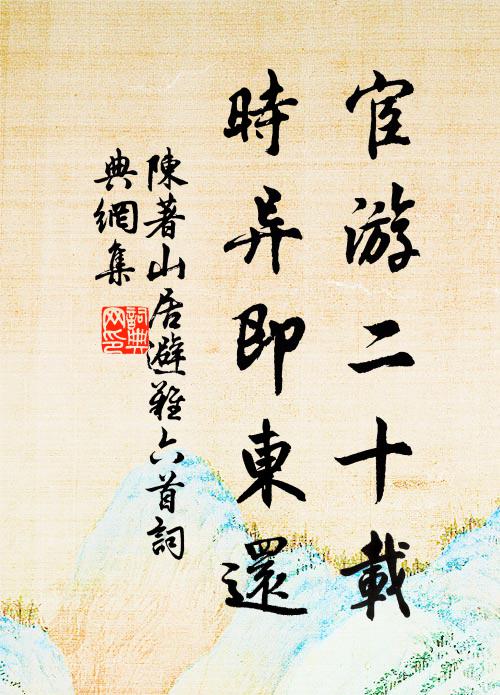 宦游二十載
時异即東還
陳著山居避難六首詞
典網集
詞典
网印